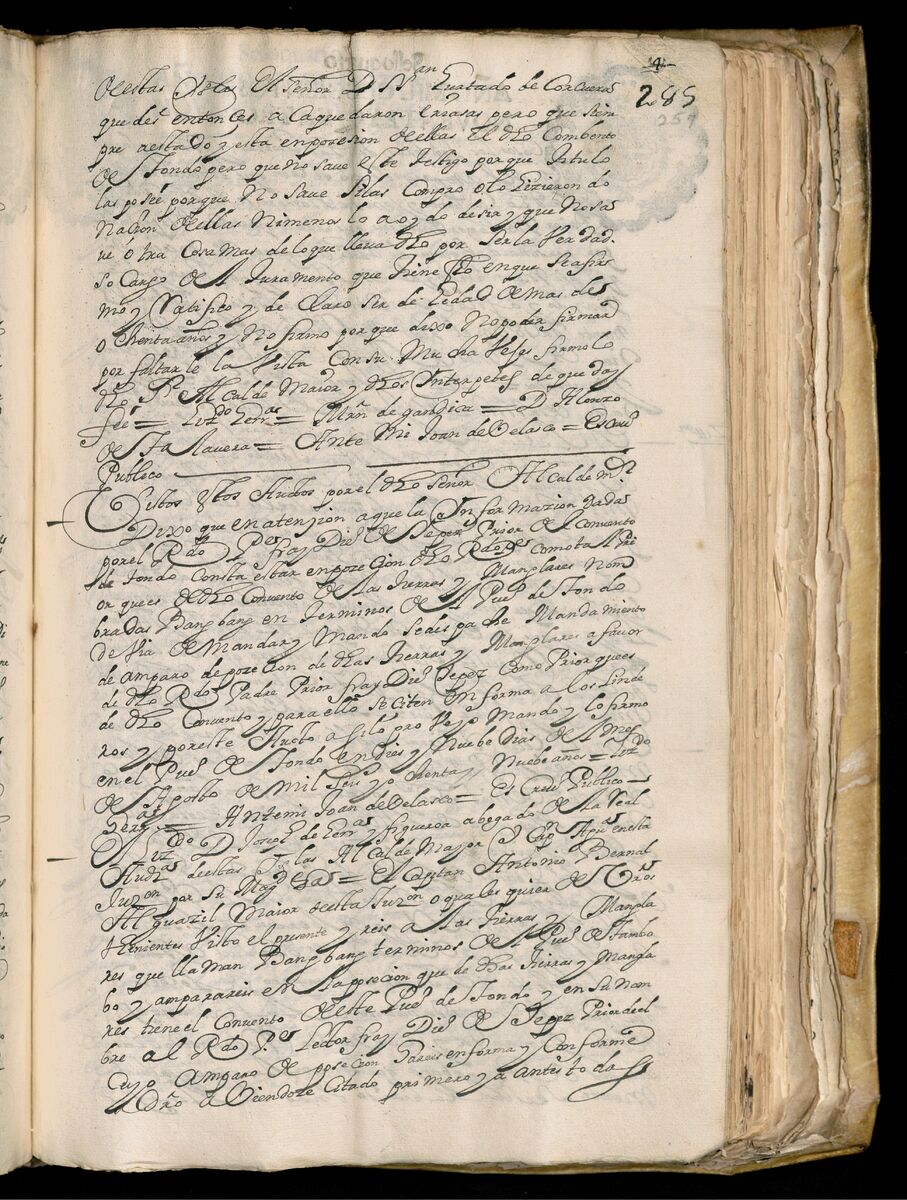 4
285
257
de estas Yslas El Señor D Sn an Hurtado de Corcuera
que des entonçes aca quedaron eriasas pero que siem
pre aestado y esta en posesion de ellas El dho Combento
de Tondo pero que no save este testigo por que titulo
las poseé porque No save Silas Compro o lo hizieron do
naçion de ellas Nimenos lo a oydo desir y que No sa
vé ótra Cosa mas de lo que lleva dho por Ser la Verdad
So Cargo de el Juramento que tiene fho en que Se afir
mo y Ratifico y de Claro Ser de hedad de mas de
ochenta años y No firmo por que dixo No poder firmar
por faltarle la Vista Con su Mucha Vejes firmolo
dho Sr. Alcalde Maior y dhos Interpetes de que doy
feé = Lizdo Herras = Mrn de gandica = D Alonzo
de Talavera = Ante Mi Joan de Velasco = Escriuo
Publico
Vistos estos Auctos por el dho Señor Alcalde mor
Dixo que en atension aquela Informazion dada
por el Rdo Pe fray Diego de Yepez Prior de Convento
de Tondo Consta estar en poçeçion dho Rdo Pe como tal Pri
or que es de dho Convento de las tierras y Manglares Nom
bradas Bangbang en terminos de el Pueo de Tondo
devia de Mandar y Mando Sedespache Mandamento
de amparo de poçeçion de dhas tierras y Manglares a favor
de dho Rdo Padre Prior fray Diego Yepez Como Prior que es
de dho Convento y para ello Se Citen en forma a los linde
ros y por este Aucto a si lo proveyo Mando y lo firmo
en el Pueo de Tondo en dies y Nuebe Dias de el mes
de Agosto de mil Seis y ochenta y Nuebe años = Lizdo
Herras = Antemi Joan de Velasco = Escriuo Publico =
El Lizdo D Joseph de Herras y figueroa abogado de la Real
Audza de estas Yslas Alcalde Mayor y Cap. a guerra en esta
Juzon por Su Magd &as = El Capitan Antonio Bernal
Alguazil Maior de esta Juzon o quales quier de Vros
thenientes Visto el presente yreis a las tierras y Mangla
res que llaman Bangbang terminos de el Pueo de Tambo
bo y ampararéis en la posecion que de dhas tierras y Mangla
res tiene el Convento de este Pueo de Tondo y en Su nom
bre al Rdo Pe Lector fray Diego de Yepez Prior de el
Cuyo amparo de poseçion dareis en forma y Conforme
a Dro aviendose Citado primero y ante todas